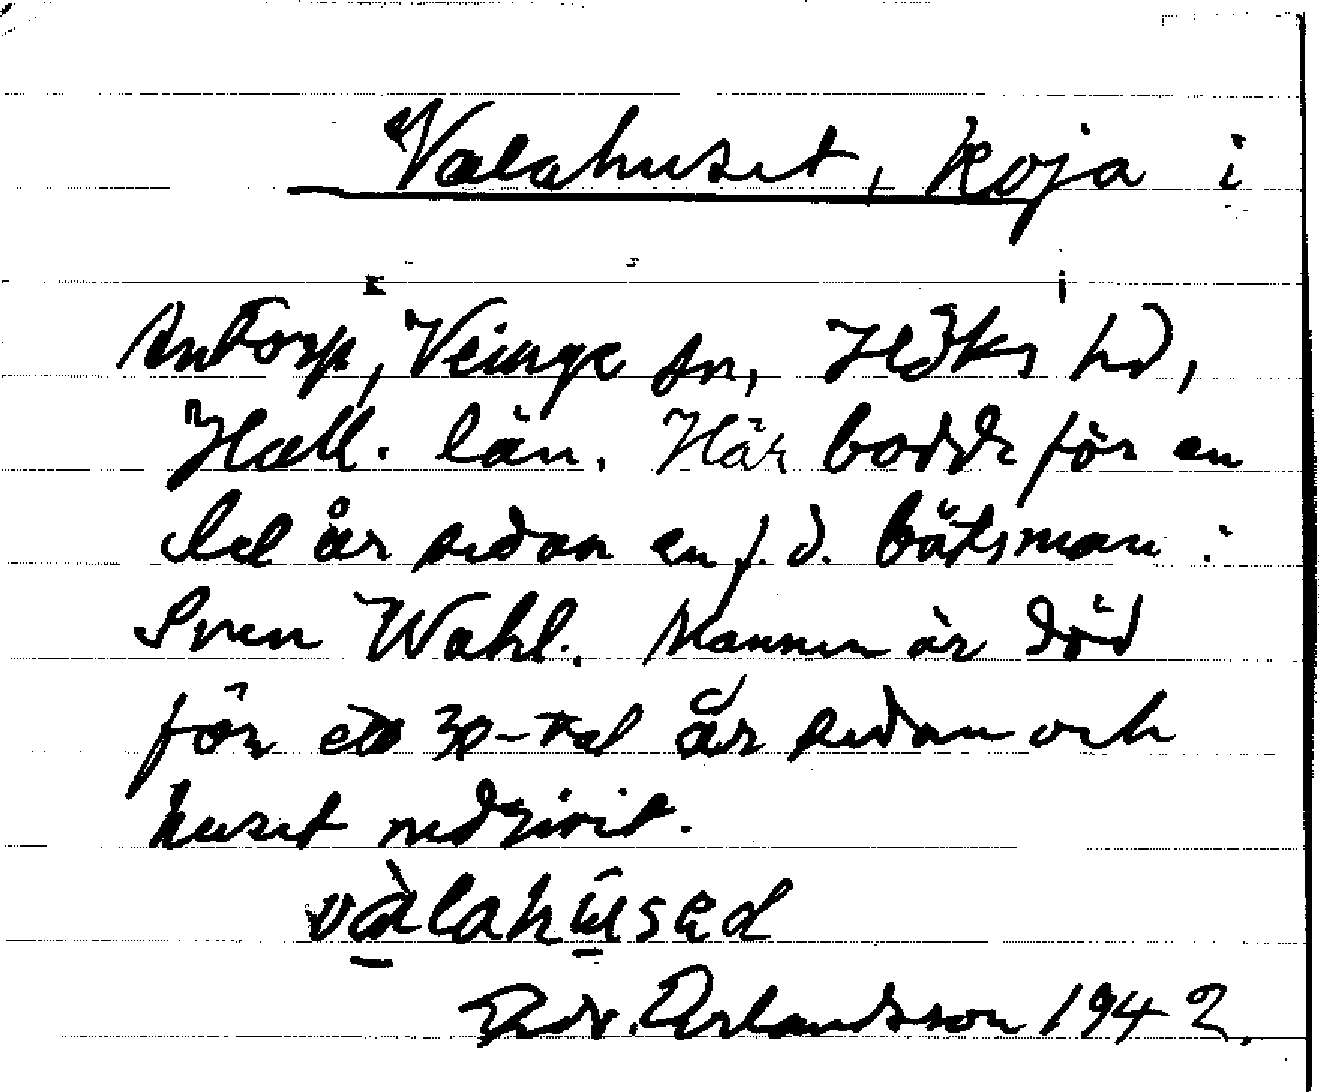 Valahuset, koja i
Antorp, Veinge sn, Höks hd,
Hall. län. Här bodde för en
del år sedan en f.d. båtsman:
Sven Wahl. Mannen är död
för ett 30-tal år sedan och
huset nedrivit.
vàlahūsəd
Edv. Arlandsson 1942.